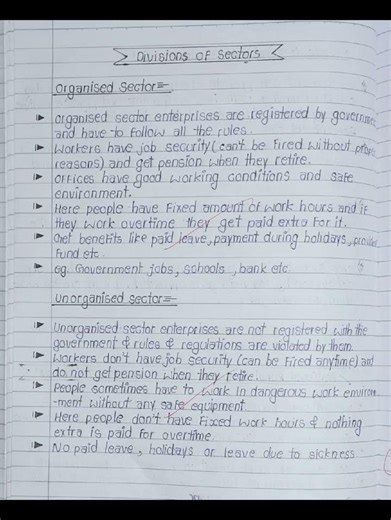 Divisions of Sectors
Organised Sector:-
organised sector enterprises are registered by governme
and have to follow all the rules.
Workers have job security (can't be fired without prope
reasons) and get pension when they retire.
offices have good working conditions and safe
environment.
Here people have fixed amount of work hours and if
they work overtime they get paid extra for it.
Get benefits like paid leave, payment during holidays, provide
fund etc.
eg. Government jobs, schools, bank etc.
Unorganised sector:-
Unorganised sector enterprises are not registered with the
government & rules & regulations are violated by them.
Workers don't have job security (can be fired anytime) and
do not get pension when they retire.
People sometimes have to work in dangerous work environ
-ment without any safe equipment.
Here people don't have fixed work hours & nothing
extra is paid for overtime.
No paid leave, holidays or leave due to sickness.